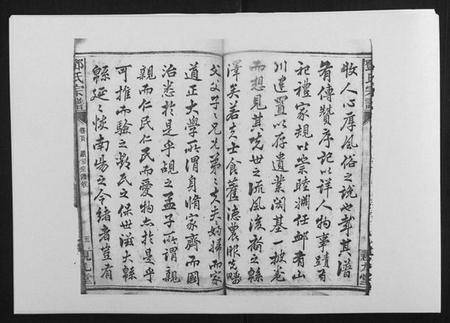 收人心厚風俗之說載其譜
有傳贊序記以詳人物事蹟有
祀禮家規以崇睦婣任卹有山
川遺置以存遺業閱其一披卷
而想見其先世之流風後裔之緜
澤矣若夫士食舊德農服先疇
父父子子兄兄弟弟夫夫婦婦而家
道正大學所謂身脩家齊而國
治悉於是乎覘之孟子所謂親
親而仁民仁民而愛物亦於是乎
可推而驗之鄧氏之保世滋大緜
緜延延懷南陽之令緒者豈有
鄧氏宗譜
卷首
五